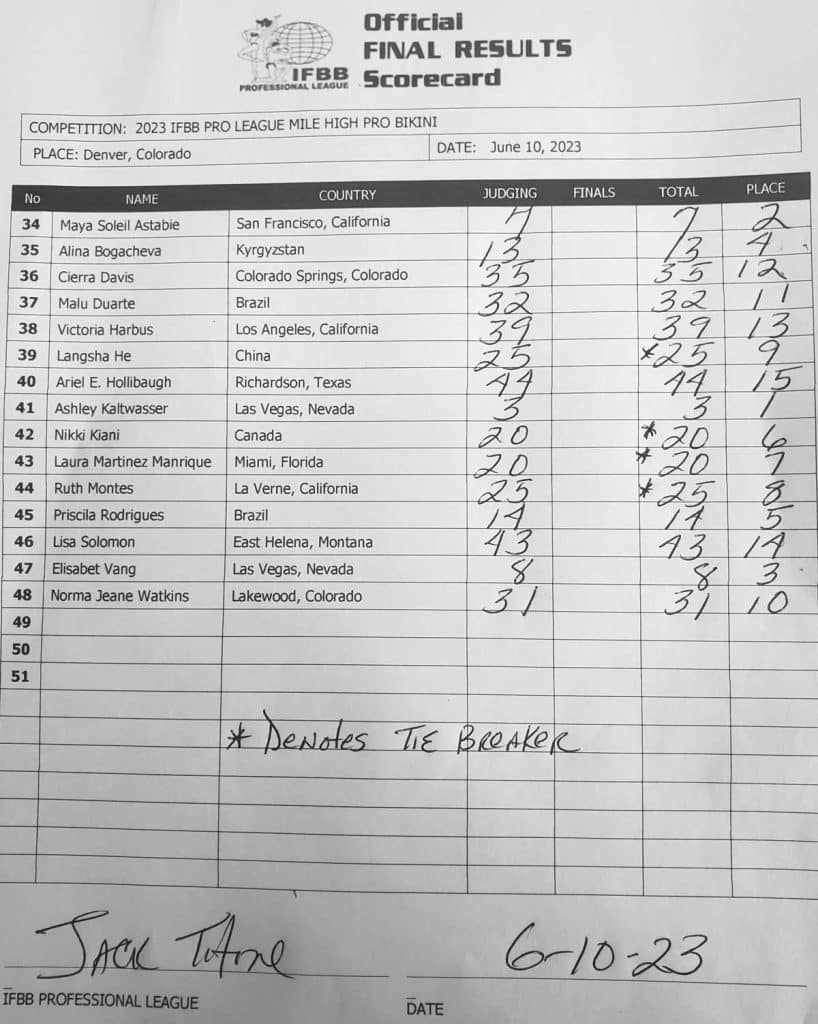 Official
FINAL RESULTS
IFBB Scorecard
PROFESSIONAL LEAGUE
COMPETITION: 2023 IFBB PRO LEAGUE MILE HIGH PRO BIKINI
PLACE: Denver, Colorado DATE: June 10, 2023
No NAME COUNTRY JUDGING FINALS TOTAL PLACE
34 Maya Soleil Astabie San Francisco, California 7 7 2
35 Alina Bogacheva Kyrgyzstan 13 13 4
36 Cierra Davis Colorado Springs, Colorado 35 35 12
37 Malu Duarte Brazil 32 32 11
38 Victoria Harbus Los Angeles, California 39 39 13
39 Langsha He China 25 *25 9
40 Ariel E. Hollibaugh Richardson, Texas 44 44 15
41 Ashley Kaltwasser Las Vegas, Nevada 3 3 1
42 Nikki Kiani Canada 20 *20 6
43 Laura Martinez Manrique Miami, Florida 20 *20 7
44 Ruth Montes La Verne, California 25 *25 8
45 Priscila Rodrigues Brazil 14 14 5
46 Lisa Solomon East Helena, Montana 43 43 14
47 Elisabet Vang Las Vegas, Nevada 8 8 3
48 Norma Jeane Watkins Lakewood, Colorado 31 31 10
49
50
51
* DENOTES TIE BREAKER
JACK 6-10-23
IFBB PROFESSIONAL LEAGUE DATE